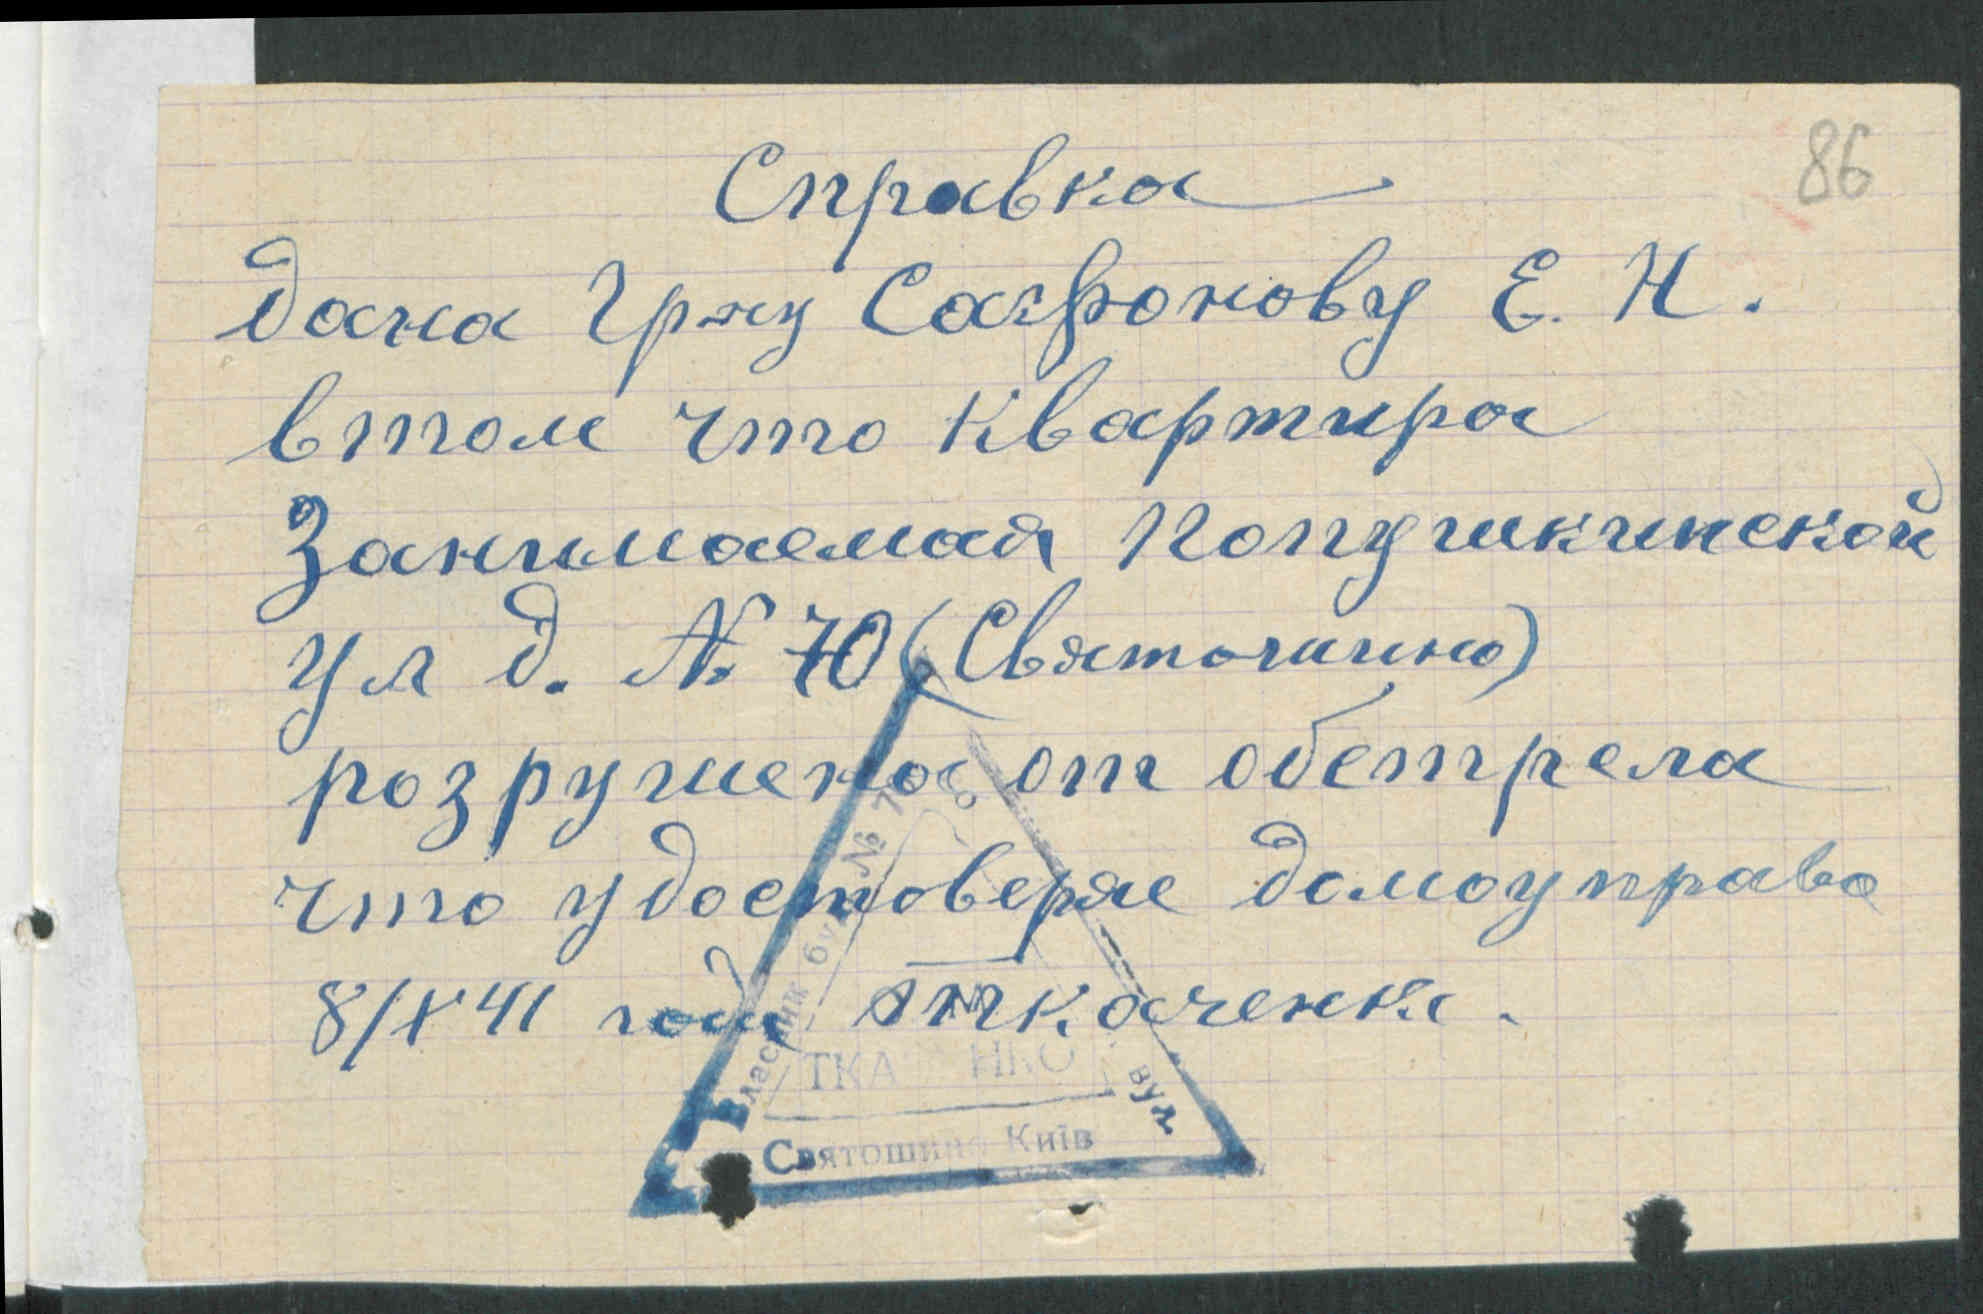 86
Справка
дана Гр-ну Сафронову Е. Н.
втом что квартира
Занимаемая попушкинской
ул д. № 70 (Святошино)
розрушена от обстрела
что удостоверяе домоуправо
8/X 41 году Ткаченко.
Власник буд. № 70
вул.
ТКА НКО
Святошино Київ